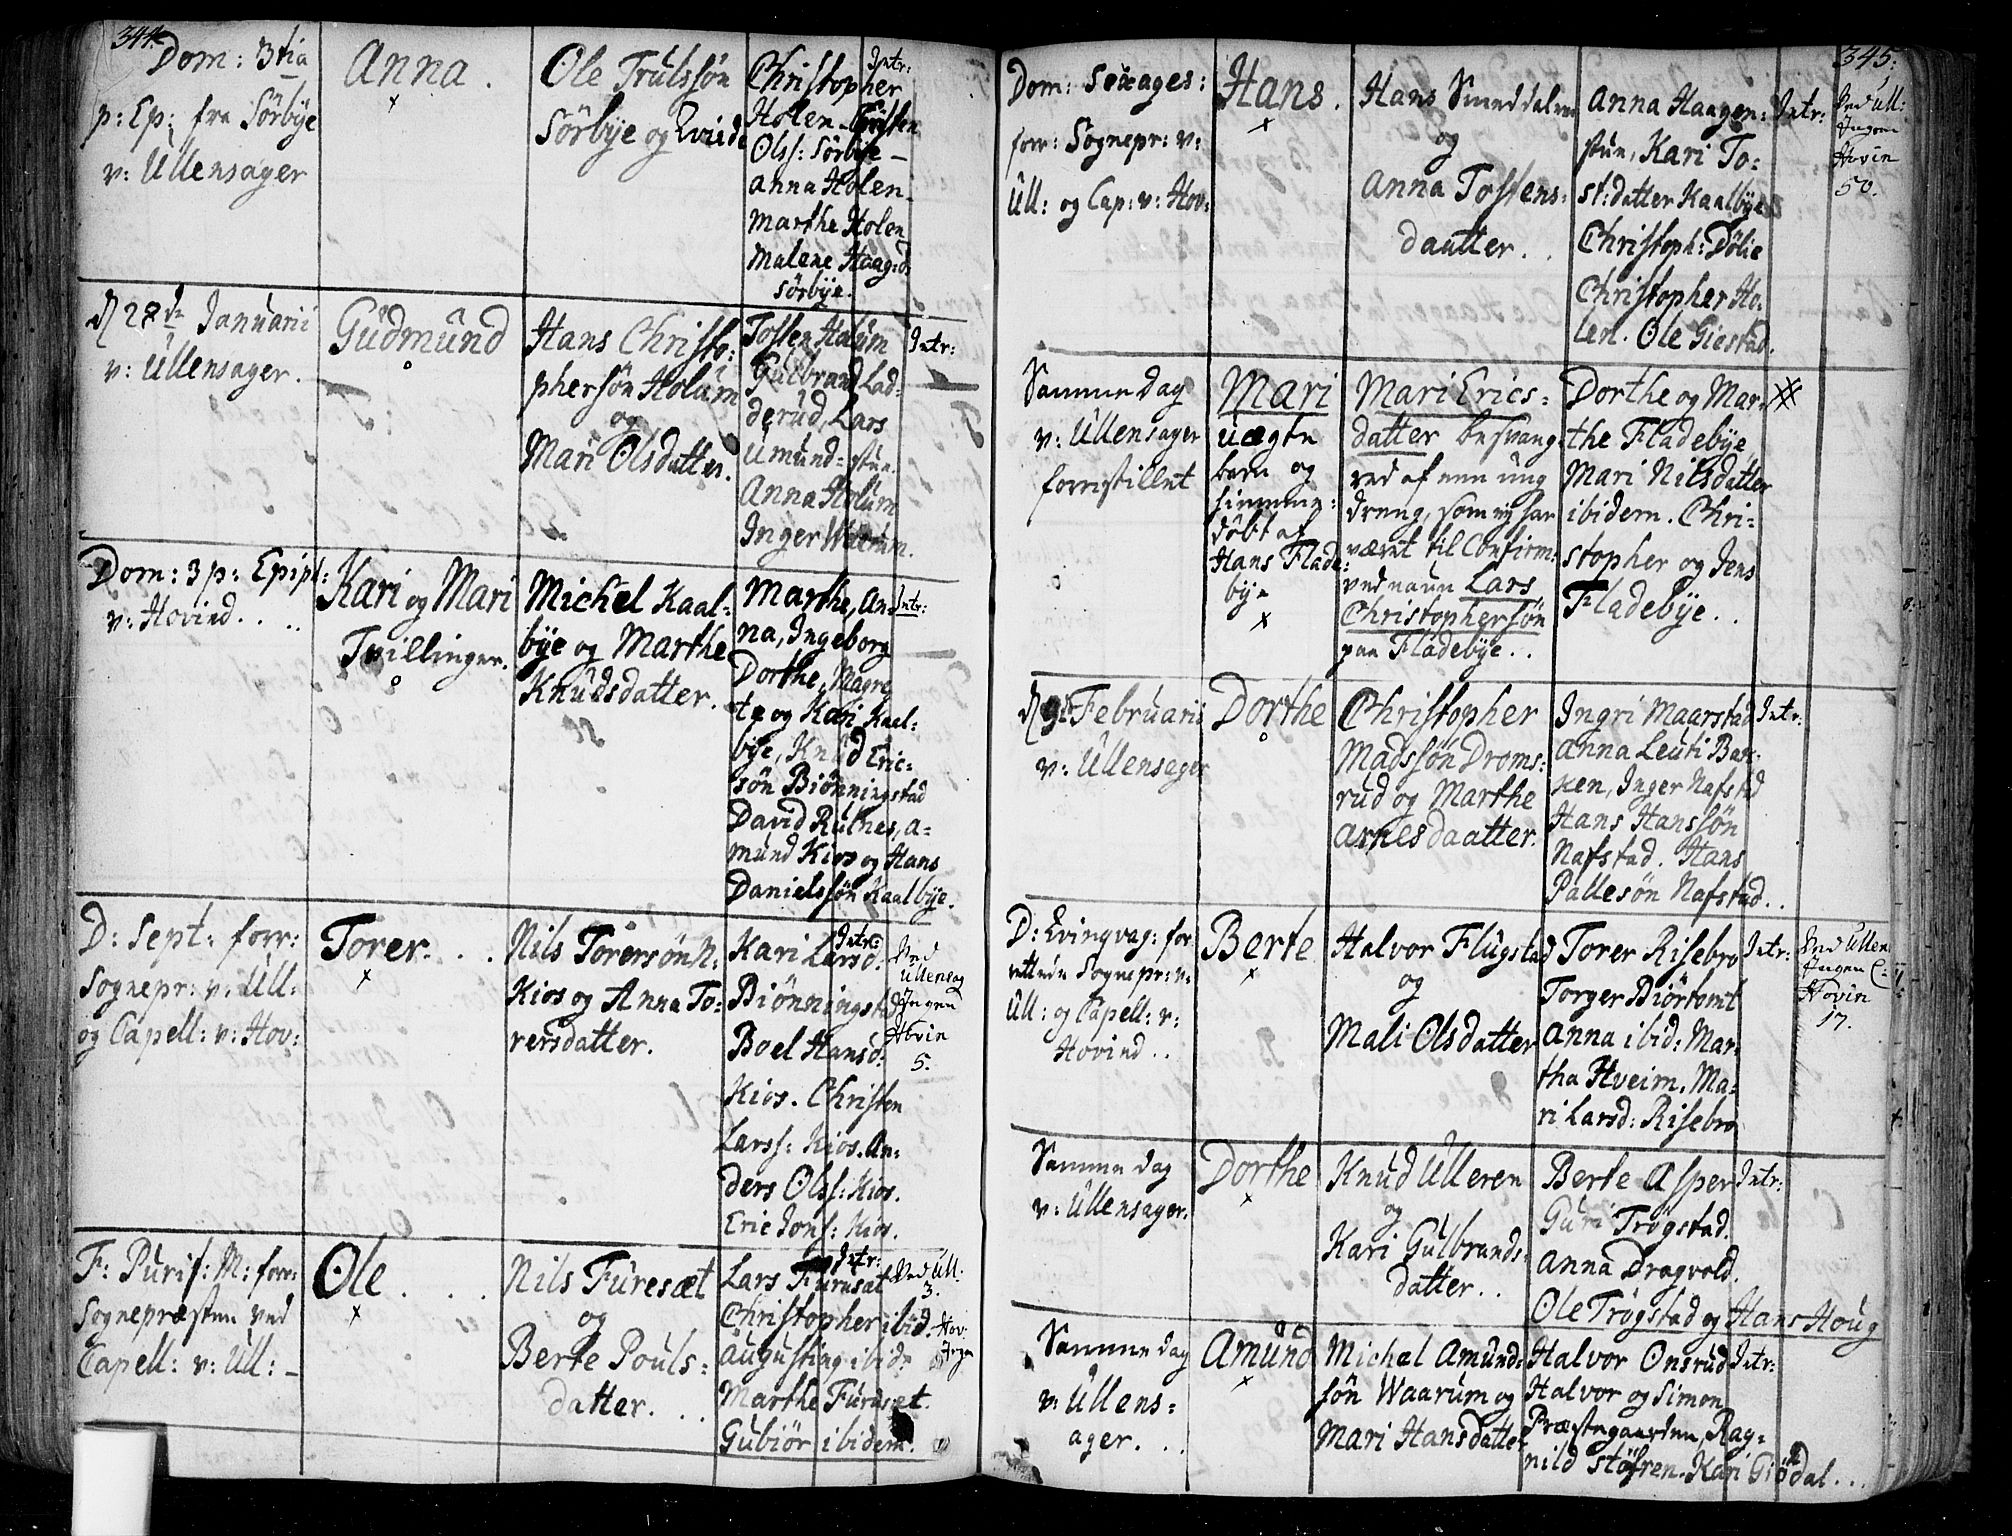 344.
Dom: 3tia
p: Ep: fra Sörbye
v: Ullensager
Anna.
Ole Trulssön
Sörbye og Qvinde
Christopher
Holen. Christen
Olss: Sörbye -
Anna Holen.
Marthe Holen
Malene Haag:d:
Sörbye.
Intr:
d 28de Januarii
v: Ullensager.
Gudmund
Hans Christo:
phersön Holum
og
Mari Olsdatter.
Tosten Holum
Gulbrand Lad-
derud, Lars
Umund=stun.
Anna Holum
Inger Waarum.
Intr:
Dom: 3 p: Epiph:
v: Hovind. . ..
Kari og Mari
Tvillinger.
Michel Kaal-
bye og Marthe
Knudsdatter.
Marthe, An-
na, Ingeborg
Dorthe, Magre
te og Kari Kaal:
bye, Knud Eric=
sön Biönningstad
David Rulnes, A=
mund Kios og Hans
Danielssön Kaalbye.
Intr:
D: Sept: forr:
Sognepr: v: Ull:
og Capell: v: Hov:
Torer. . .
Nils Torersön N:
Kios og Anna To-
rersdatter.
Kari Larsd:
Biönningstad
Boel Hansd:
Kios. Christen
Larss: Kios. An=
ders Olss: Kios.
Eric Jons: Kios.
Intr:
Ved
Ullensag
Ingen
Hovin
5.
F: Purif: M: forr:
Sognepræsten ved
Capell: v: Ull: -
Ole . . .
Nils Furesæt
og
Berte Pouls=
datter. . .
Lars Furusæt
Christopher ibid.
Augusting ibid:
Marthe Furuset.
Gubiör ibidem.
Intr:
Ved Ull:
3.
Hov:
Ingen
345.
Dom: Sexages:
forr: Sognepr: v:
Ull: og Cap: v: Hov:
Hans.
Hans Smeddalen
og
Anna Tostens=
daatter. .
Anna Haagen=
stun, Kari To=
st:datter Kaalbye
Christoph: Dölie
Christopher Ho-
len. Ole Giestad.
Intr:
Ved Ull:
Ingen
Hovin
50.
Samme dag
v: Ullensager
forrestillet
Mari
uægte
barn og
hiemme=
döbt af
Hans Flade-
bye
Mari Erics=
datter besvang-
red af een ung
dreng, som ey har
været til Confirm:
ved navn Lars
Christophersön
paa Fladebye. .
Dorthe og Mar-
the Fladebye
Mari Nilsdatter
ibidem. Chri=
stopher og Jens
Fladebye. .
d 9de Februarii
v: Ullensager
Dorthe
Christopher
Madssön Droms=
rud og Marthe
Arnesdaatter.
Ingri Maarstad
Anna Leuti Bak-
ken, Inger Nafstad
Hans Hanssön
Nafstad. Hans
Pallesön Nafstad. .
Intr:
D: Qvinqvag: for
rettede Sognepr: v:
Ull: og Capell: v:
Hovind. .
Berte
Halvor Flugstad
og
Mali Olsdatter
Torer Risebro
Torger Biörtomt
Anna ibid: Mar-
tha Hveim. Ma=
ri Larsd: Risebro
Intr:
Ved Ullen
Ingen C:
Hovin
17.
Samme dag
v: Ullensager.
Dorthe
Knud Ulleren
og
Kari Gulbrands=
datter. .
Berte Asper
Guri Trögstad.
Anna Dragvold.
Ole Trögstad og Hans Houg
Intr:
Samme dag
v: Ullens=
ager. . .
Amund
Michel Amund=
sön Waarum og
Mari Hansdatter
Halvor Onsrud
Halvor og Simon
Præstegaarden, Rag=
nild Stöfren. Kari Giödal...
Intr: